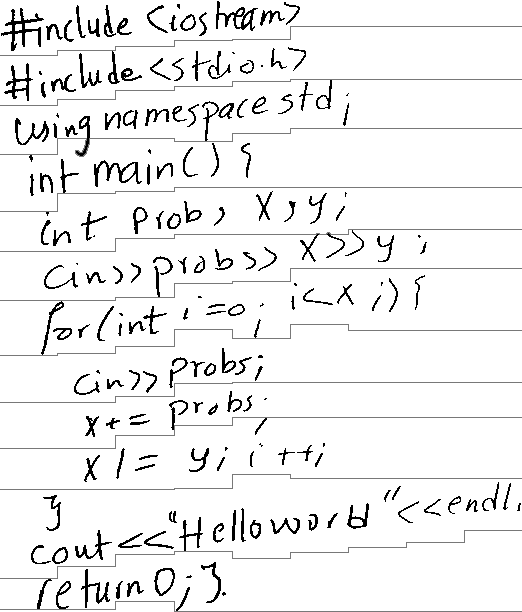 #include <iostream>
#include <stdio.h>
using namespace std;
int main() {
int prob, x, y;
cin>>probs>> x>>y;
for(int i=0; i<x;){
cin>> probs;
x+= probs;
x /= y; i++;
}
cout<<"Helloworld"<<endl.
return 0; }.